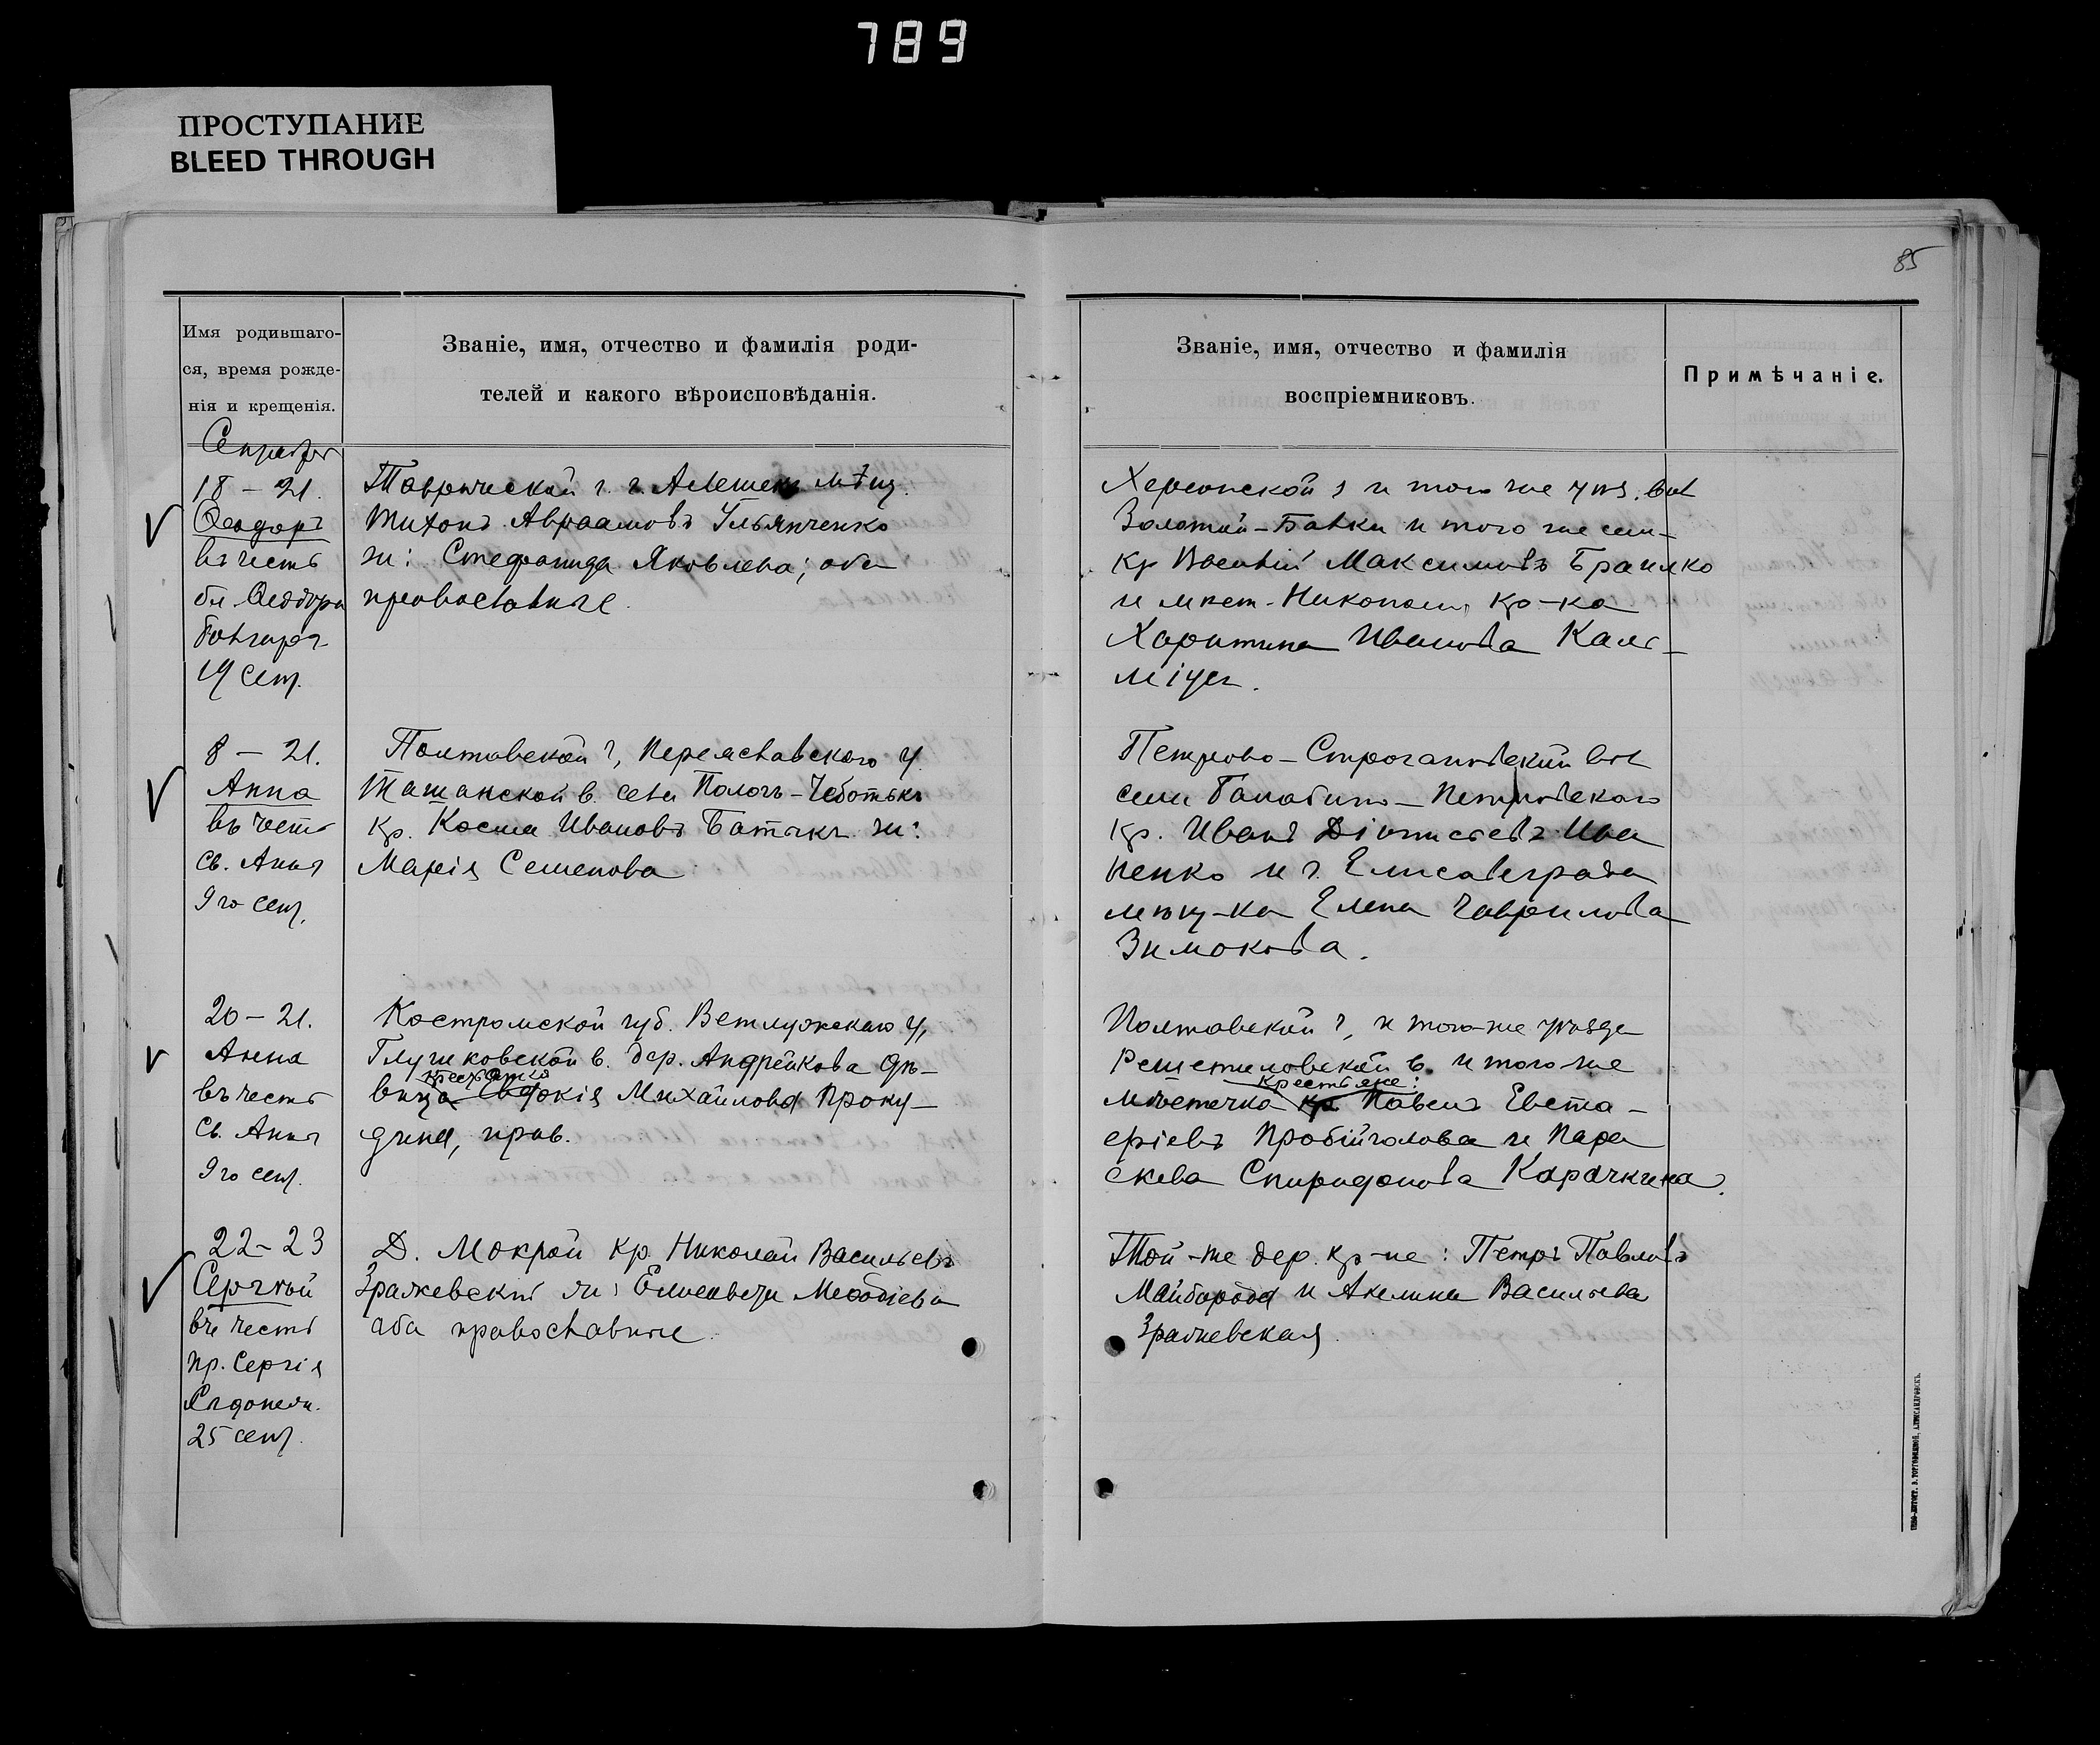 789
ПРОСТУПАНИЕ
BLEED THROUGH
85
Имя родившаго-
ся, время рожде-
нія и крещенія.
Званіе, имя, отчество и фамилія роди-
телей и какого вѣроисповѣданія.
Званіе, имя, отчество и фамилія
воспріемниковъ.
Примѣчаніе.
18 – 21.
Ѳеодоръ
въ честь
бл. Ѳеодора
19 сент.
Таврической г. г. Алешекъ мѣщ.
Тихонъ Авраамовъ Ульянченко
ж: Стефанида Яковлева; оба
православные.
Херсонской г и того же уѣз. вол
Золотой-Балки и того же села
кр Василій Максимовъ Браилко
и мѣст. Никополя, кр-ка
Харитина Иванова Каль-
міусъ.
8 – 21.
Анна
въ честь
св. Анны
9го сент.
Полтавской г, Переяславского у.
Ташанской в. села Пологъ-Чеботькъ
кр. Косма Ивановъ Батыкъ ж:
Марія Семенова
Петрово-Строгановской вол
села Балабино-Петровскаго
кр. Иванъ Діонисіевъ Ива
ненко и г. Елисаветграда
мѣщ-ка Елена Гаврилова
Зимокова.
20 – 21.
Анна
въ честь
Св. Анны
9го сент.
Костромской губ. Ветлужскаго у,
Глушковской в. дер. Андрейкова дѣ-
крестьянка
вица Евдокія Михайлова Проку-
дина, прав.
Полтавской г, и того-же уѣзда
Решетиловской в. и того же
крестьяне:
мѣстечка кр Павелъ Евста-
фіевъ Пробійголова и Пара
скева Спиридонова Карачкина.
22 – 23
Сергѣй
въ честь
пр. Сергія
Радонеж.
25 сент.
Д. Мокрой кр. Николай Васильевъ
Зражевскій ж: Елисавета Меѳодіева
оба православные.
Той-же дер. кр-не: Петръ Павловъ
Майборода и Акелина Васильева
Зражевская.